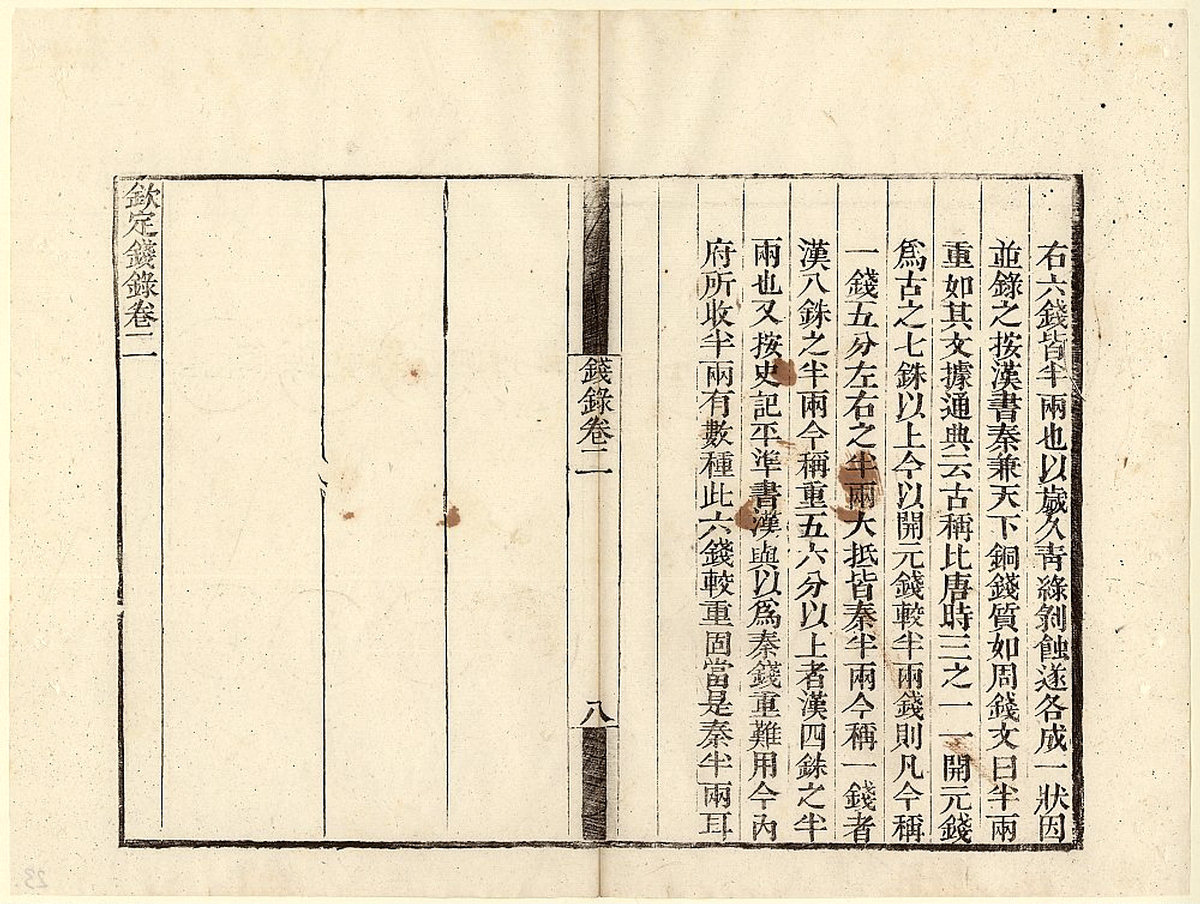 右六錢皆半兩也以歲久青綠剝蝕遂各成一狀因
並錄之按漢書秦兼天下銅錢質如周錢文曰半兩
重如其文據通典云古稱比唐時三之一一開元錢
爲古之七銖以上今以開元錢較半兩錢則凡今稱
一錢五分左右之半兩大抵皆秦半兩今稱一錢者
漢八銖之半兩今稱重五六分以上者漢四銖之半
兩也又按史記平準書漢興以爲秦錢重難用今內
府所收半兩有數種此六錢較重固當是秦半兩耳
錢錄卷二
八
欽定錢錄卷二
23